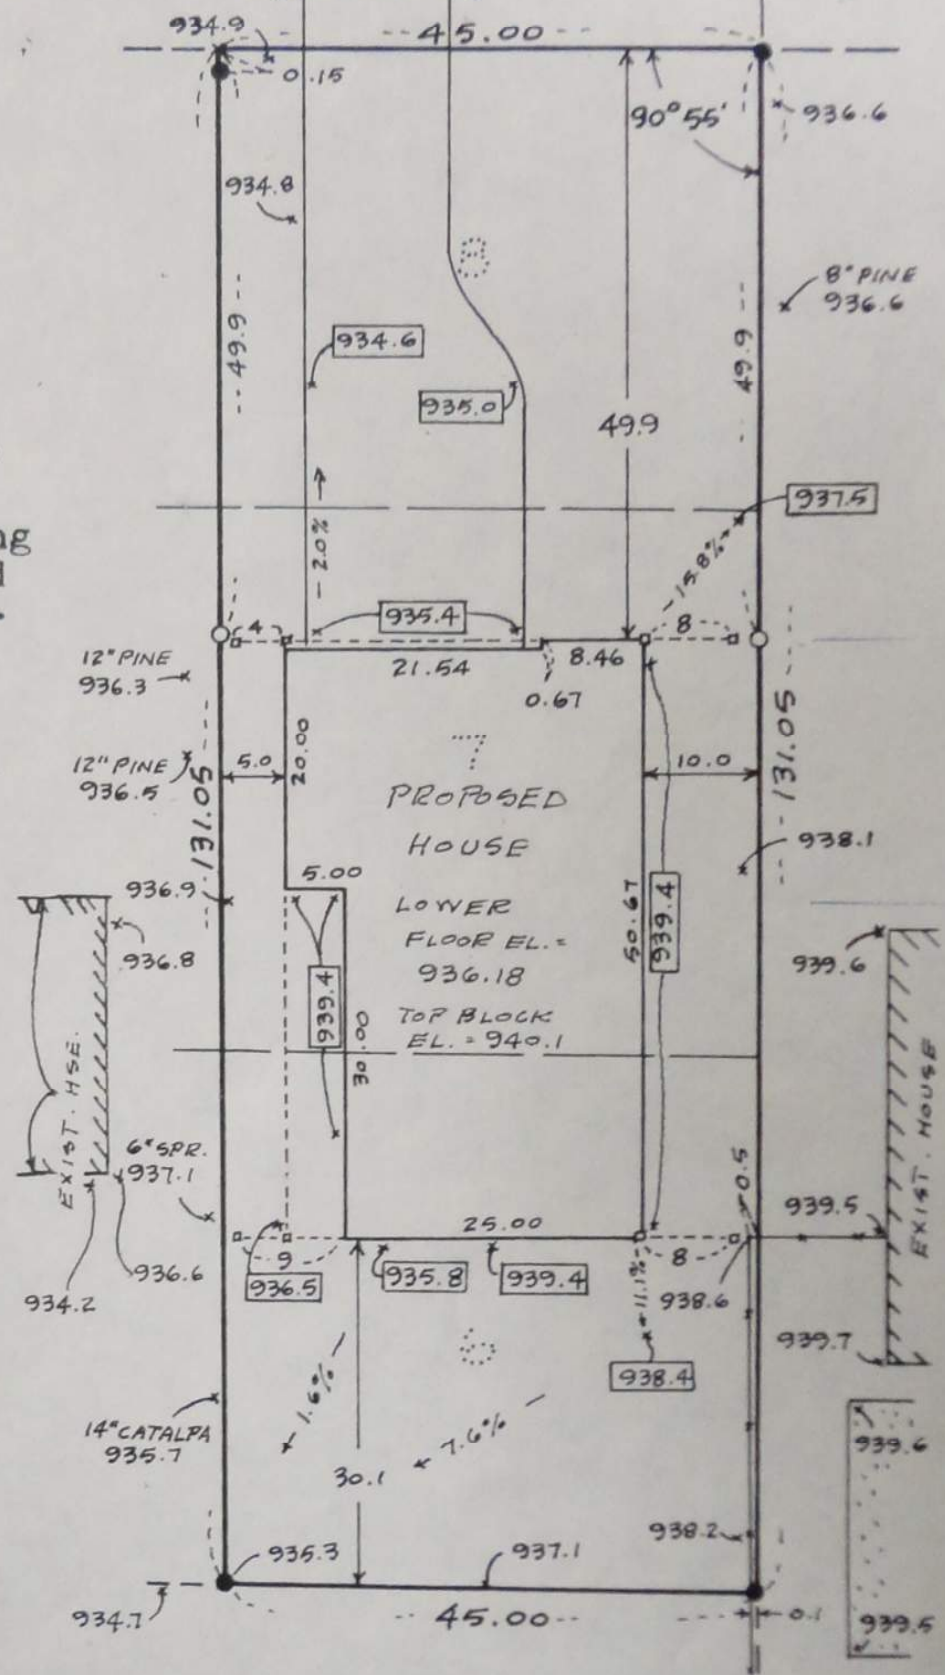 934.9
45.00
0.15
90°55'
936.6
934.8
8
8" PINE
936.6
49.9
934.6
935.0
49.9
49.9
937.5
2.0%
15.8%
4
935.4
8
12" PINE
936.3
21.54
8.46
0.67
131.05
131.05
12" PINE
936.5
5.0
20.00
7
10.0
PROPOSED
HOUSE
938.1
936.9
5.00
LOWER
FLOOR EL. =
936.18
TOP BLOCK
EL. = 940.1
50.67
939.4
939.4
30.00
936.8
939.6
EXIST. HSE.
EXIST. HOUSE
6" SPR.
937.1
0.5
939.5
25.00
9
8
936.6
936.5
935.8
939.4
938.6
934.2
11.1%
939.7
938.4
1.6%
7.6%
14" CATALPA
935.7
30.1
939.6
938.2
935.3
937.1
934.7
45.00
0.1
939.5